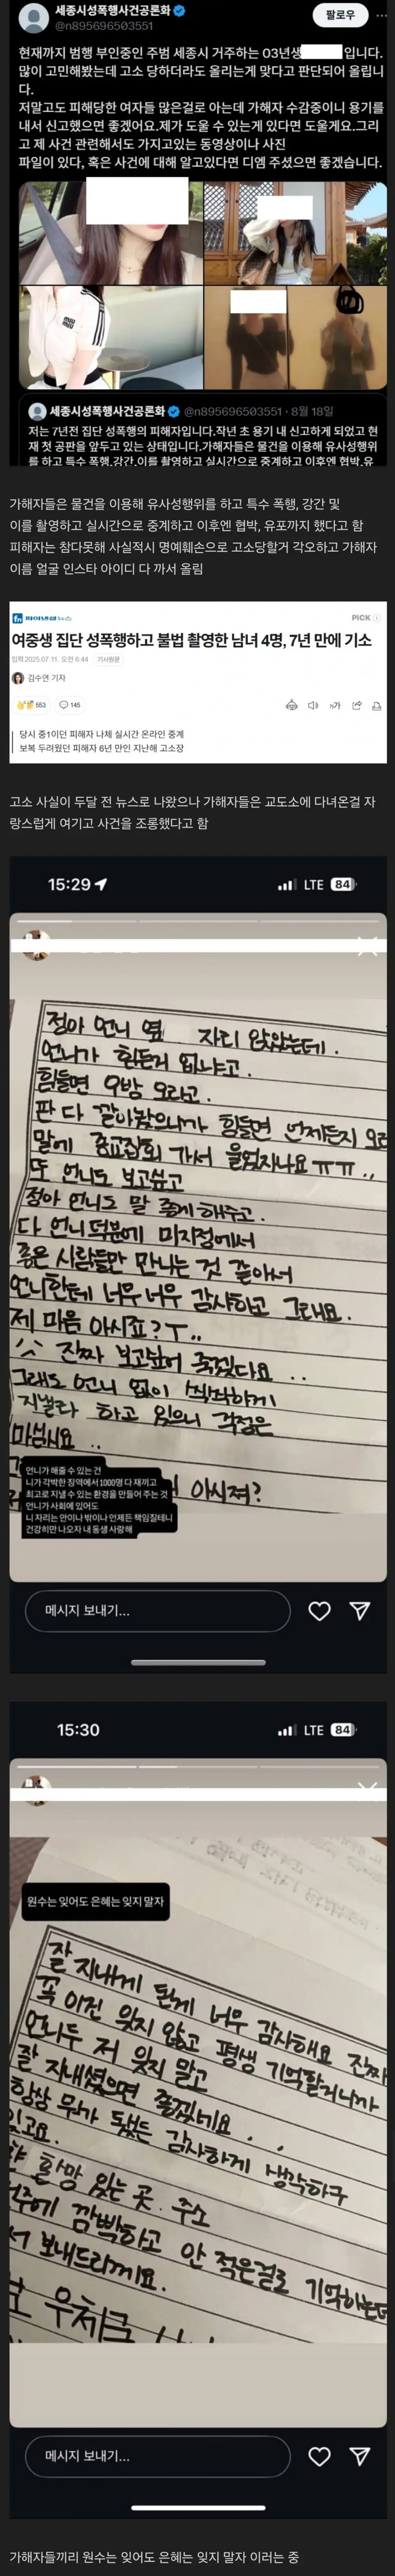 세종시성폭행사건공론화
@n895696503551
팔로우
현재까지 범행 부인중인 주범 세종시 거주하는 03년생 입니다.
많이 고민해봤는데 고소 당하더라도 올리는게 맞다고 판단되어 올립니
다.
저말고도 피해당한 여자들 많은걸로 아는데 가해자 수감중이니 용기를
내서 신고했으면 좋겠어요.제가 도울 수 있는게 있다면 도울게요.그리
고 제 사건 관련해서도 가지고있는 동영상이나 사진
파일이 있다, 혹은 사건에 대해 알고있다면 디엠 주셨으면 좋겠습니다.
miu
miu
세종시성폭행사건공론화 @n895696503551 · 8월 18일
저는 7년전 집단 성폭행의 피해자입니다.작년 초 용기 내 신고하게 되었고 현
재 첫 공판을 앞두고 있는 상태입니다.가해자들은 물건을 이용해 유사성행위
를 하고 특수 폭행,강간,이를 촬영하고 실시간으로 중계하고 이후엔 협박,유
가해자들은 물건을 이용해 유사성행위를 하고 특수 폭행, 강간 및
이를 촬영하고 실시간으로 중계하고 이후엔 협박, 유포까지 했다고 함
피해자는 참다못해 사실적시 명예훼손으로 고소당할거 각오하고 가해자
이름 얼굴 인스타 아이디 다 까서 올림
fn 파이낸셜뉴스
PiCK
여중생 집단 성폭행하고 불법 촬영한 남녀 4명, 7년 만에 기소
입력 2025.07.11. 오전 6:44 기사원문
김수연 기자
553 145
당시 중1이던 피해자 나체 실시간 온라인 중계
보복 두려웠던 피해자 6년 만인 지난해 고소장
고소 사실이 두달 전 뉴스로 나왔으나 가해자들은 교도소에 다녀온걸 자
랑스럽게 여기고 사건을 조롱했다고 함
15:29 LTE 84
정아 언니 옆 자리 앉았는데.
언니가 힘든거 있냐고.
힘들면 오방 오라고.
판 다 깔아놨으니까 힘들면 언제든지 오라
말에 종교집회 가서 울었자나요 ㅠㅠ..
또 언니도 보고싶고
정아 언니도 말 좋게 해주고.
다 언니 덕분에 미지정에서
좋은 사람들만 만나는 것 같아서
언니한테 너무 너무 감사하고 그래요.
제 마음 아시죠? ㅜ..
진짜 보고싶어 죽겠다요..
그래도 언니 없이 씩씩하게
지낼라 하고 있으니 걱정은
마십시요..
아시져?
언니가 해줄 수 있는 건
니가 각박한 징역에서 1000명 다 재끼고
최고로 지낼 수 있는 환경을 만들어 주는 것
언니가 사회에 있어도
니 자리는 안이나 밖이나 언제든 책임질테니
건강히만 나오자 내 동생 사랑해
메시지 보내기...
15:30 LTE 84
원수는 잊어도 은혜는 잊지 말자
잘 지내게 된게 너무 감사해요 진짜
꼭 이건 잊지 않고 평생 기억할거니까
언니두 저 잊지 말고
잘 지내셨으면 좋겠네요..
항상 뭐가 됐든 감사하게 생각하구
있고요.
희망 있는 곳 주소
깜빡하고 안 적은걸로 기억하는데
서 보내드라께요.
우체국
메시지 보내기...
가해자들끼리 원수는 잊어도 은혜는 잊지 말자 이러는 중